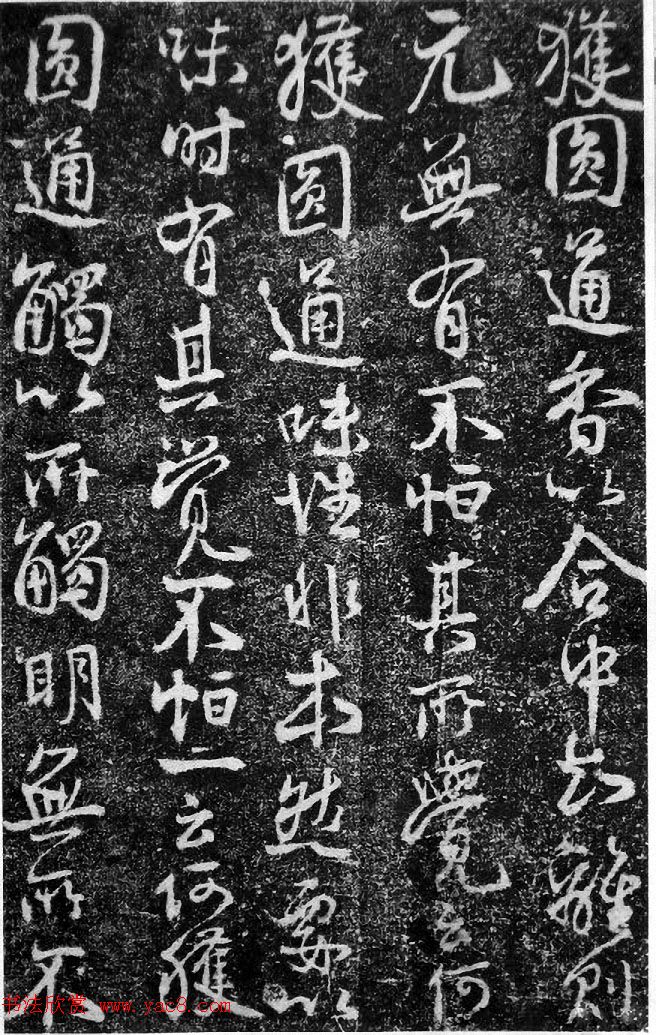 獲圓通香以合中知離則
元無有不恒其所覺云何
獲圓通味性非本然要以
味时有其覚不恒一云何獲
圓通觸以所觸明無所不
书法欣赏 www.yac8.com